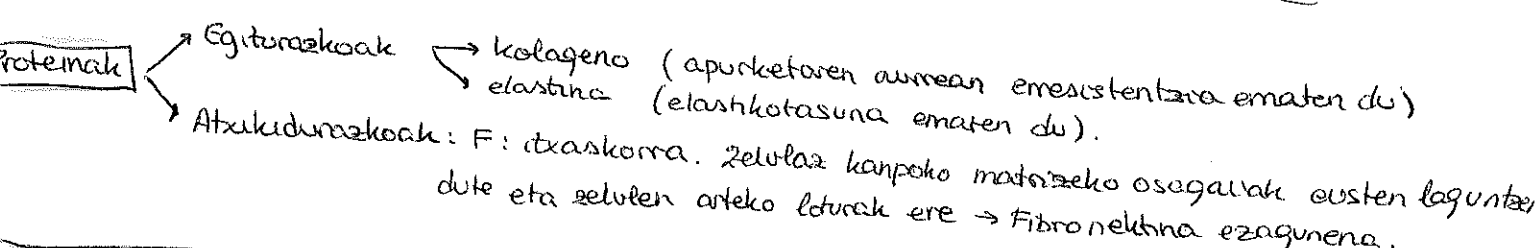 Proteinak → Egiturazkoak → kolageno (apurketaren aurrean erresistentzia ematen du)
→ elastina (elastikotasuna ematen du).
→ Atxikidurazkoak: F: itxaskorra. Zelulaz kanpoko matrizeko osagaiak eusten laguntzen
dute eta zelulen arteko loturak ere → Fibronektina ezagunena.